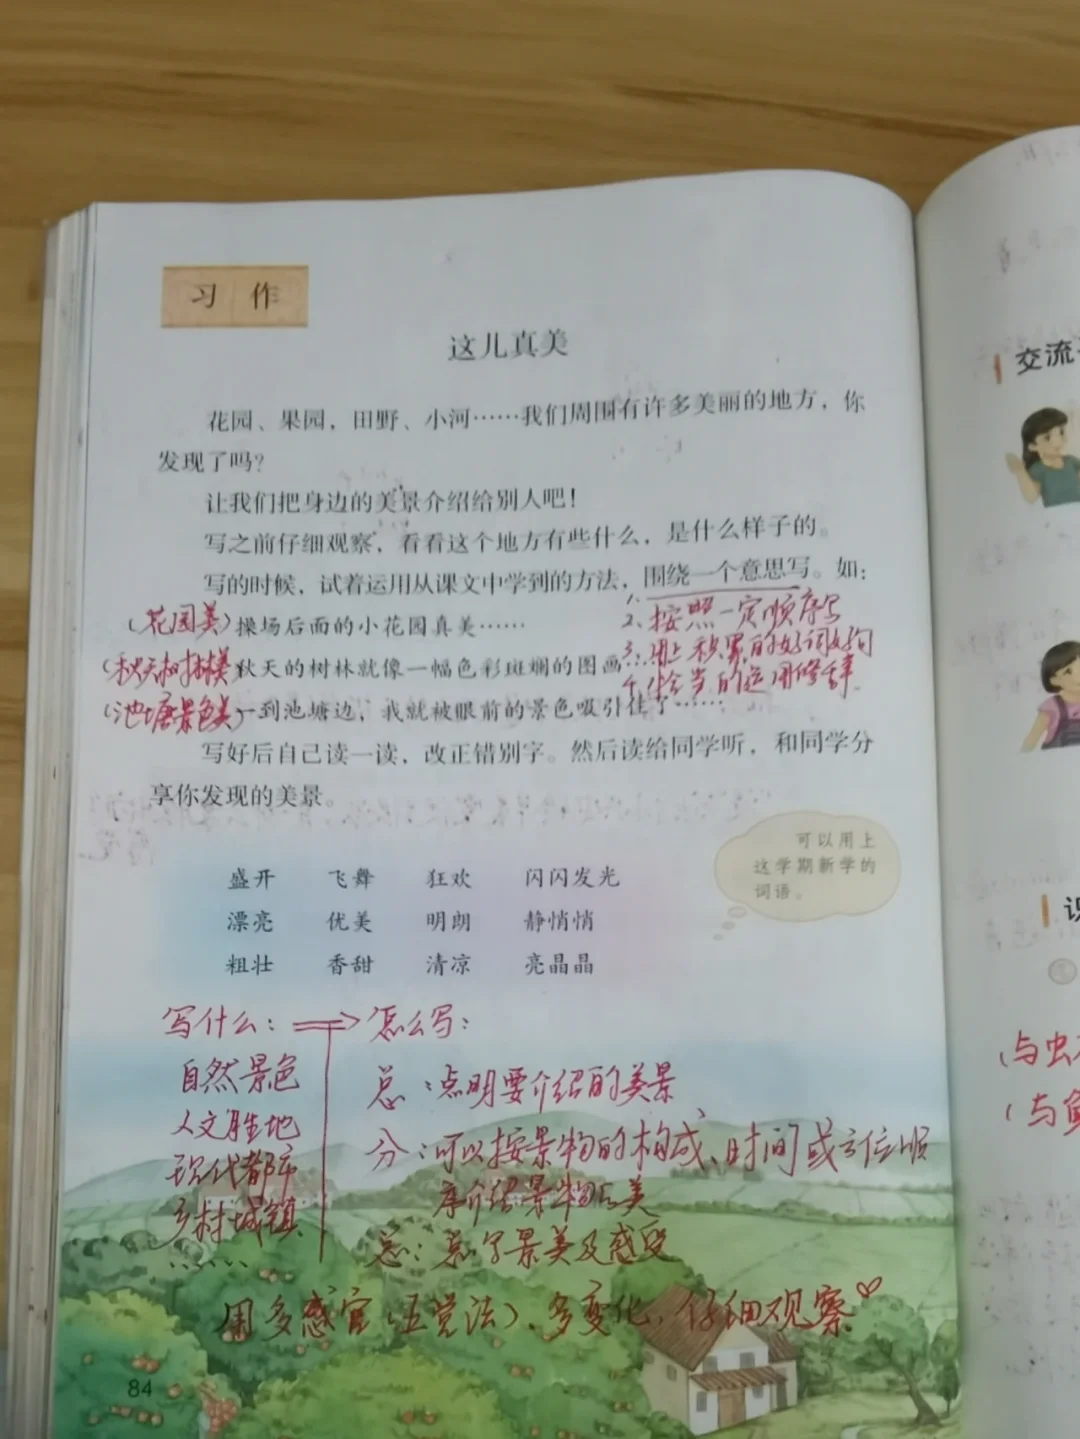 习作
这儿真美
花园、果园，田野、小河……我们周围有许多美丽的地方，你
发现了吗？
让我们把身边的美景介绍给别人吧！
写之前仔细观察，看看这个地方有些什么，是什么样子的。
写的时候，试着运用从课文中学到的方法，围绕一个意思写。如：
1.
2、按照一定顺序写
(花园美)操场后面的小花园真美……
3、用上积累的好词好句
(秋天树林美)秋天的树林就像一幅色彩斑斓的图画
4、恰当的运用修辞.
(池塘景色美)一到池塘边，我就被眼前的景色吸引住了……
写好后自己读一读，改正错别字。然后读给同学听，和同学分
享你发现的美景。
可以用上
这学期新学的
词语。
盛开 飞舞 狂欢 闪闪发光
漂亮 优美 明朗 静悄悄
粗壮 香甜 清凉 亮晶晶
写什么： 怎么写：
自然景色
总：点明要介绍的美景
人文胜地
分：可以按景物的构成、时间或方位顺
现代都市
序介绍景物之美
乡村城镇
……
总：点写景美及感受
用多感官(五觉法)、多变化、仔细观察
84
交流
识
(与虫
(与鱼